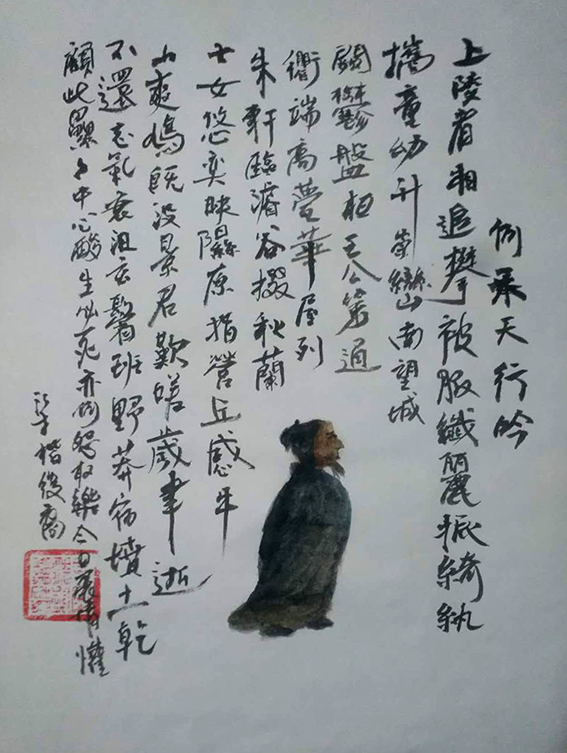 何承天行吟
上陵者相追攀被服纖麗振綺紈
攜童幼升崇巒南望城
闕鬱盤桓王公第通
衢端高甍華屋列
朱軒臨濬谷掇秋蘭
士女悠奕映隰原指營丘感牛
山爽鳩既没景君歎嗟歲聿逝
不還志氣衰沮玄鬢班野莽宿墳土乾
顧此纍々中心酸生必死亦何怨取樂今日展情懽
梁楷後裔